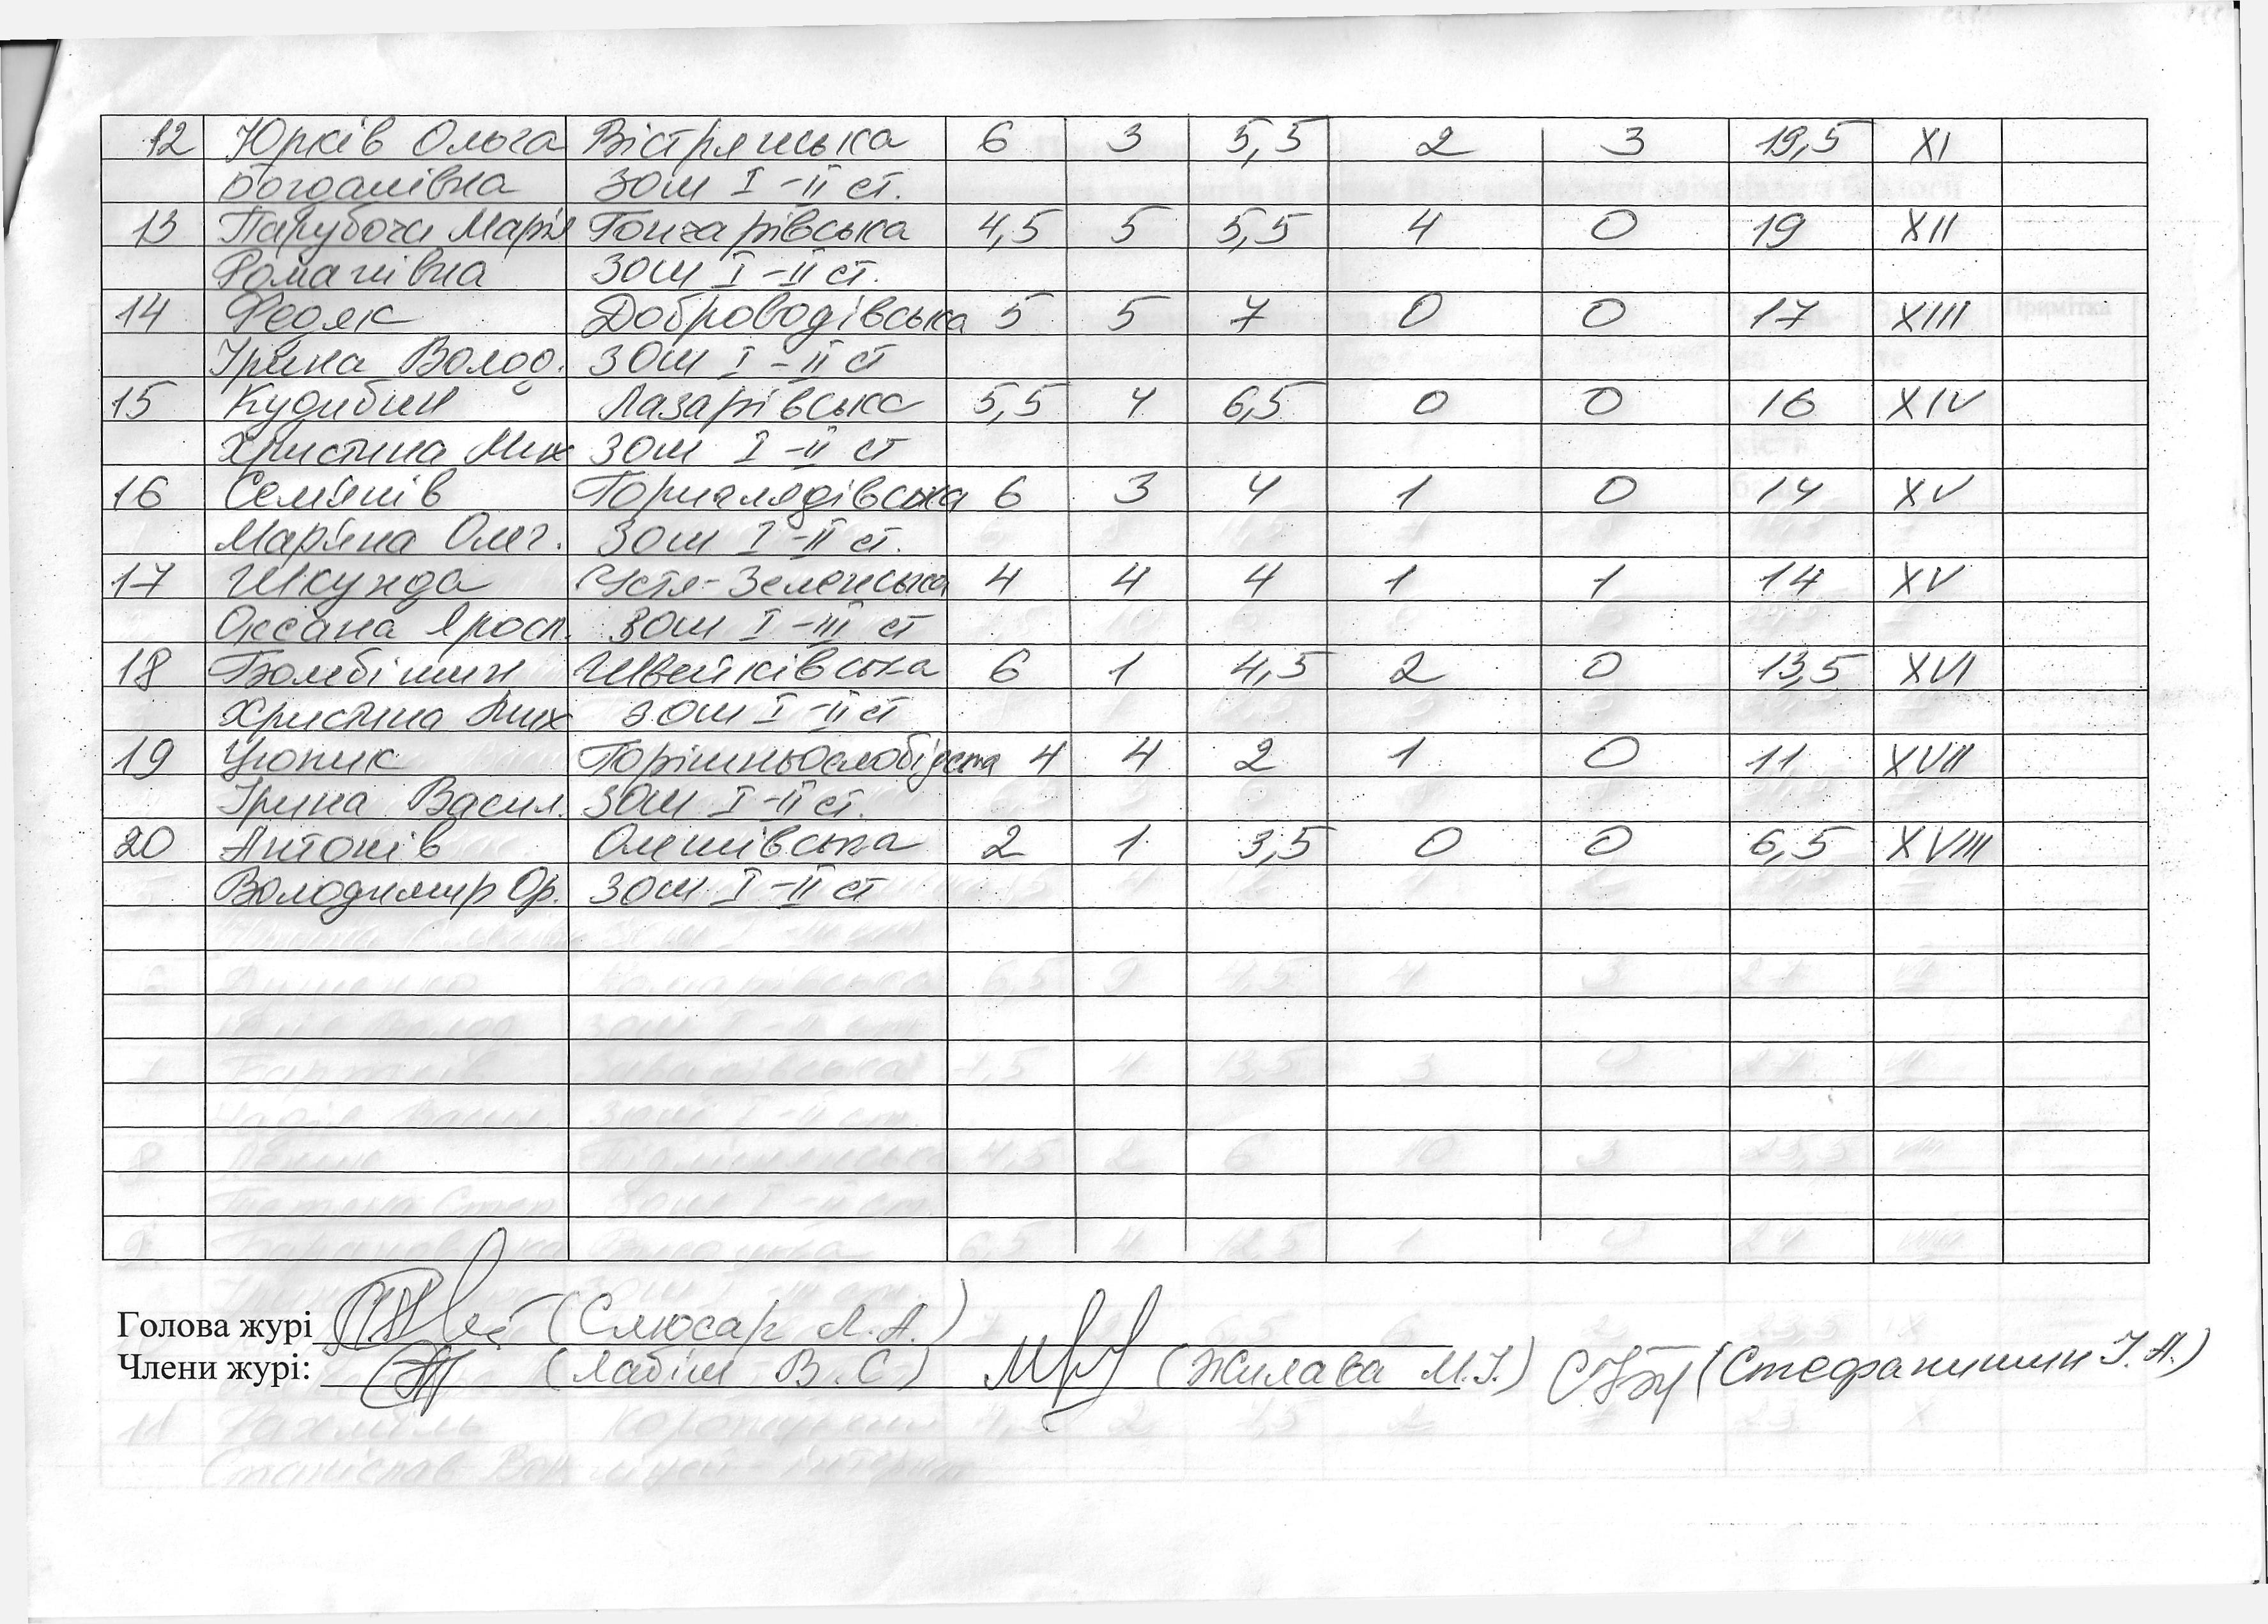 12 Юрків Ольга Вістрянська 6 3 5,5 2 3 19,5 XI
Богданівна ЗОШ I-II ст.
13 Парубоча Марія Гончарівська 4,5 5 5,5 4 0 19 XII
Романівна ЗОШ I-II ст.
14 Федяк Доброводівська 5 5 7 0 0 17 XIII
Ірина Волод. ЗОШ I-II ст
15 Кудибин Лазарівська 5,5 4 6,5 0 0 16 XIV
Христина Мих ЗОШ I-II ст
16 Сем'янів Гориглядівська 6 3 4 1 0 14 XV
Мар'яна Олег. ЗОШ I-II ст.
17 Шкунда Устя-Зеленська 4 4 4 1 1 14 XV
Оксана Яросл. ЗОШ I-III ст
18 Бомбішин Швейківська 6 1 4,5 2 0 13,5 XVI
Христина Мих ЗОШ I-II ст
19 Цюпик Горішньослобідська 4 4 2 1 0 11 XVII
Ірина Васил. ЗОШ I-II ст.
20 Антонів Олешівська 2 1 3,5 0 0 6,5 XVIII
Володимир Ор. ЗОШ I-II ст
Голова журі (Слюсар Л.А.)
Члени журі: (Лабіш В.С) (Жилава М.І.) (Стефанишин І.Я.)